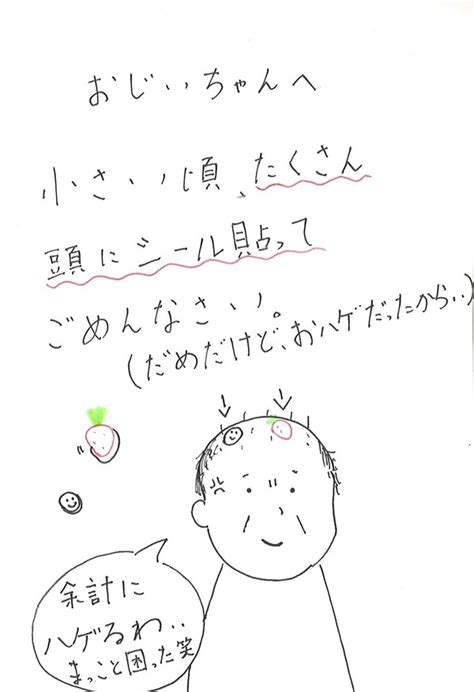 おじいちゃんへ
小さい頃、たくさん
頭にシール貼って
ごめんなさい。
(だめだけど、おハゲだったから‥)
余計に
ハゲるわ‥
まっこと困った笑